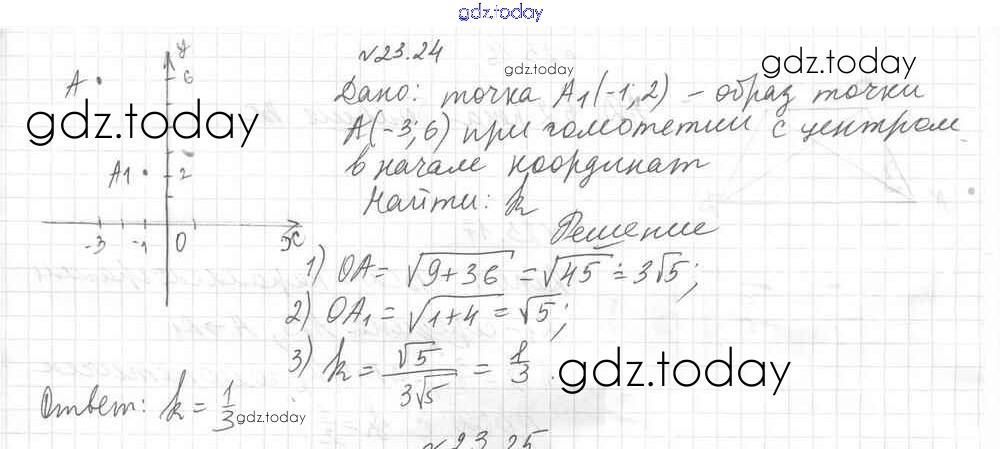 gdz.today
№23.24
gdz.today
Дано: точка A1(-1; 2) - образ точки
A(-3; 6) при гомотетии с центром
в начале координат
Найти: k
Решение
1) OA = √9+36 = √45 = 3√5;
2) OA1 = √1+4 = √5;
3) k = √5/3√5 = 1/3.
Ответ: k = 1/3
gdz.today
gdz.today
gdz.today
y
A
6
A1
2
-3 -1 0 x
№23.25